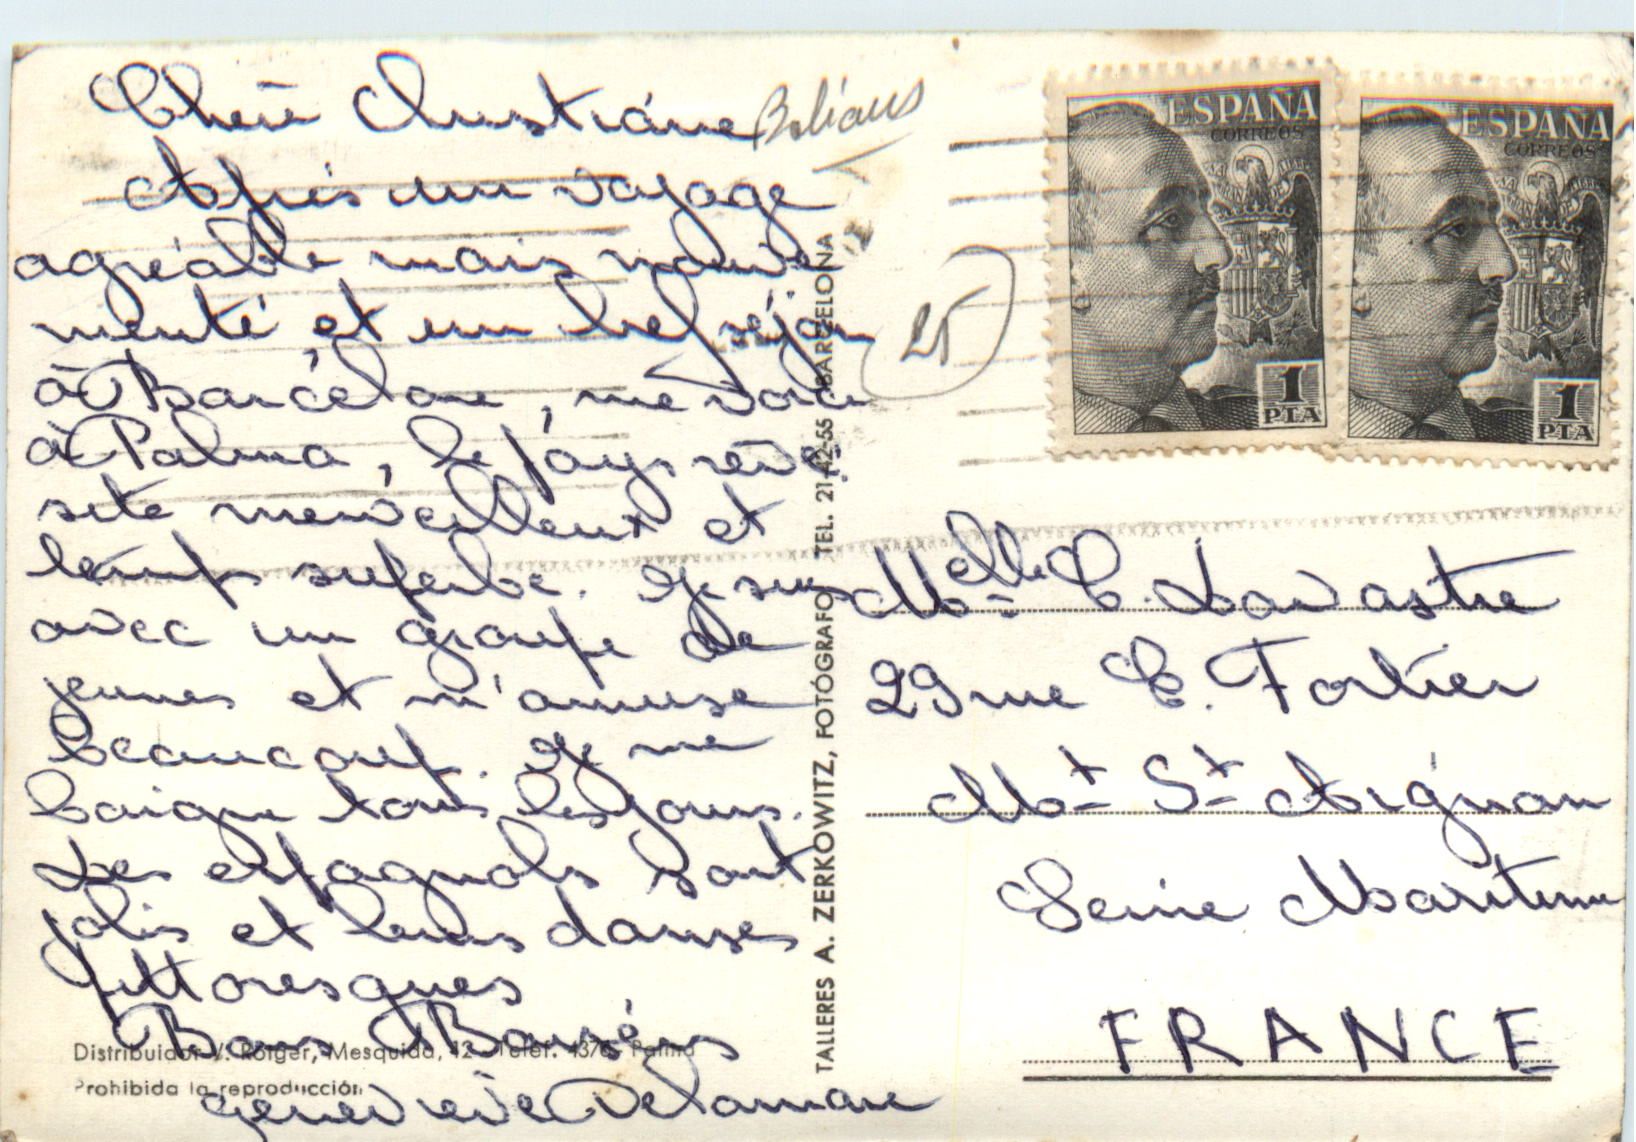 Chère Christiane
Après un voyage
agréable mais mouve
menté et un bref séjour
à Barcelone, me voici
à Palma, le pays rêvé.
site merveilleux et
temps superbe. Je suis
avec un groupe de
jeunes et m'amuse
beaucoup. Je me
baigne tous les jours.
Les espagnols sont
jolis et leurs danses
pittoresques
Bons Baisers
Geneviève Delamare
Distribuidor V. Rotger, Mesquida, 12 - Teléf. - Palma
Prohibida la reproducción
TALLERES A. ZERKOWITZ, FOTÓGRAFO TEL. 21-42-55 BARCELONA
ESPAÑA
CORREOS
1
PTA
ESPAÑA
CORREOS
1
PTA
Melle C. Lavastre
29 rue C. Fortier
Mt St Aignan
Seine Maritime
FRANCE